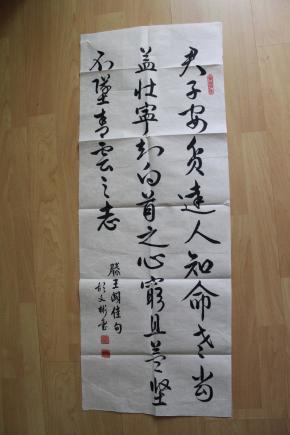 君子安负达人知命老当
益壮宁知白首之心穷且益坚
不坠青云之志
滕王阁佳句
彬书